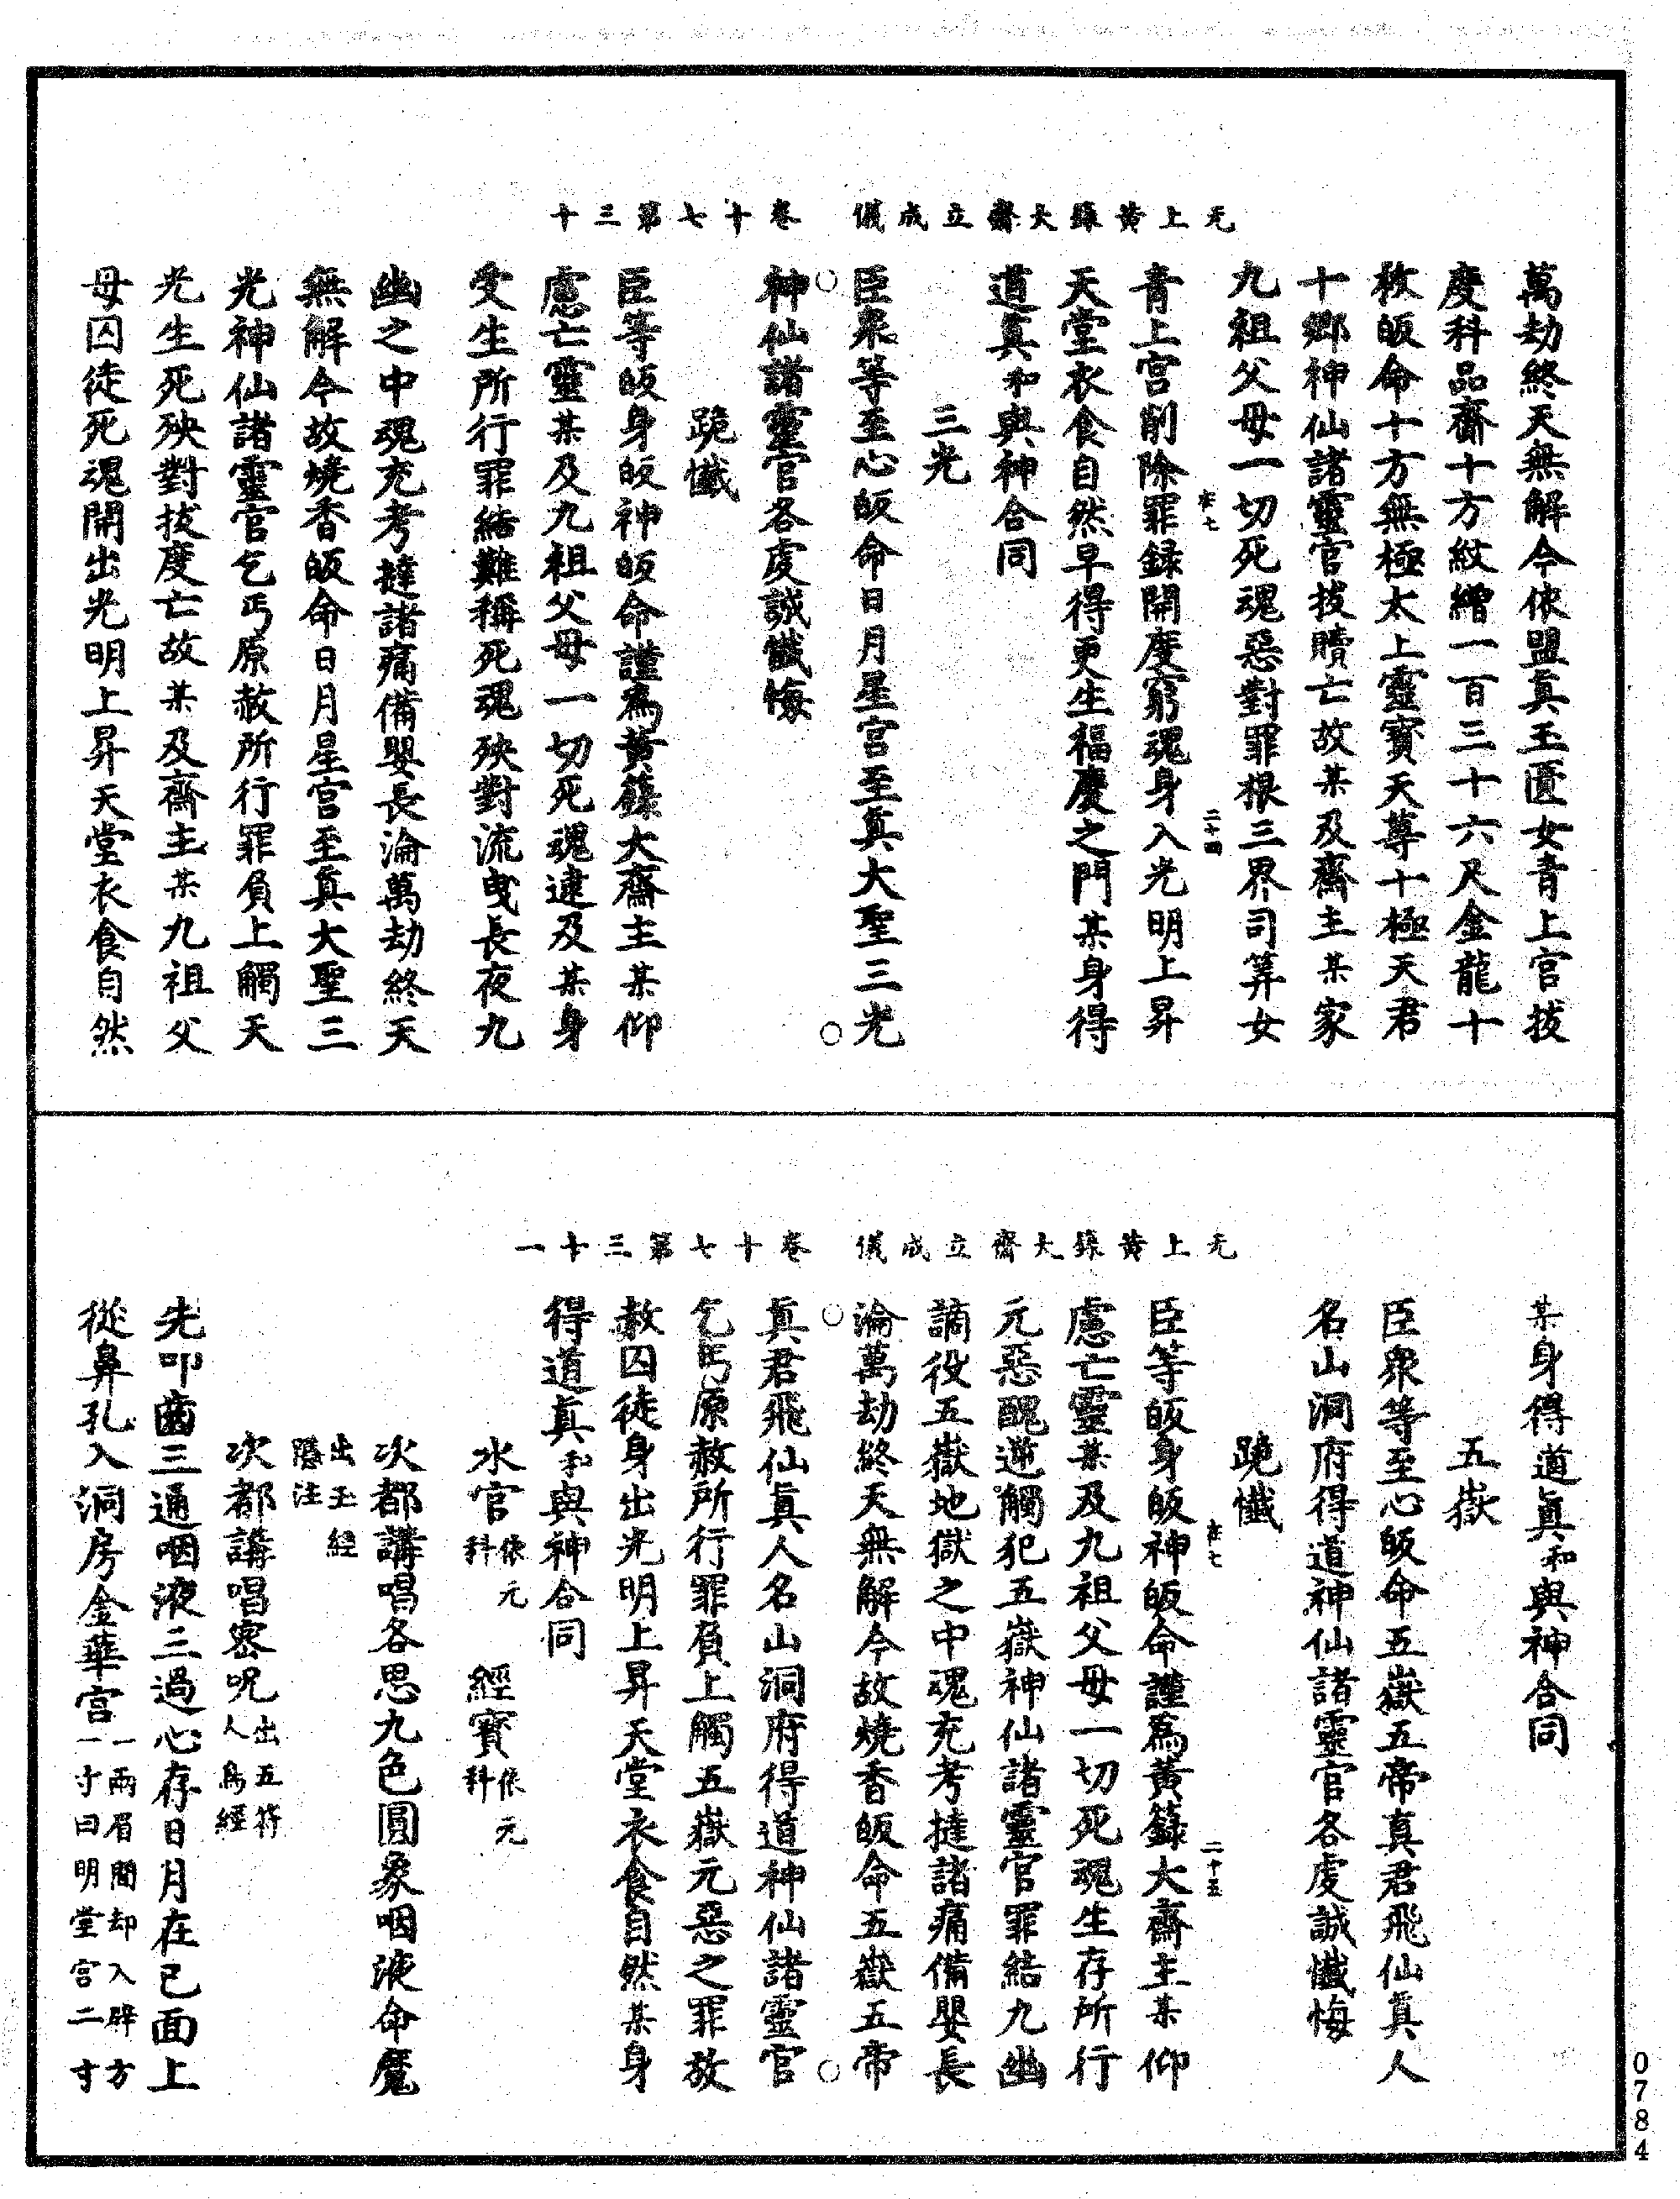 无上黃籙大齋立成儀　卷十七第三十
萬劫終天無解今依盟真玉匱女青上宮拔
度科品齋十方紋繒一百三十六尺金龍十
枚皈命十方無極太上靈寶天尊十極天君
十鄉神仙諸靈官拔贖亡故某及齋主某家
九祖父母一切死魂惡對罪根三界司筭女
青上宮削除罪録開度窮魂身入光明上昇
天堂衣食自然早得更生福慶之門某身得
道真和與神合同
三光
臣衆等至心皈命日月星宮至真大聖三光
神仙諸靈官各虔誠懺悔
跪懺
臣等皈身皈神皈命謹爲黃籙大齋主某仰
慮亡靈某及九祖父母一切死魂逮及某身
受生所行罪結難稱死魂殃對流曳長夜九
幽之中魂充考撻諸痛備嬰長淪萬劫終天
無解今故燒香皈命日月星宮至真大聖三
光神仙諸靈官乞丐原赦所行罪負上觸天
光生死殃對拔度亡故某及齋主某九祖父
母囚徒死魂開出光明上昇天堂衣食自然
二十四
无上黃籙大齋立成儀　卷十七第三十一
某身得道真和與神合同
五嶽
臣衆等至心皈命五嶽五帝真君飛仙真人
名山洞府得道神仙諸靈官各虔誠懺悔
跪懺
臣等皈身皈神皈命謹爲黃籙大齋主某仰
慮亡靈某及九祖父母一切死魂生存所行
元惡醜逆觸犯五嶽神仙諸靈官罪結九幽
謫役五嶽地獄之中魂充考撻諸痛備嬰長
淪萬劫終天無解今故燒香皈命五嶽五帝
真君飛仙真人名山洞府得道神仙諸靈官
乞丐原赦所行罪負上觸五嶽元惡之罪放
赦囚徒身出光明上昇天堂衣食自然某身
得道真和與神合同
水官依元科　經寶依元科
次都講唱各思九色圓象咽液命魔
出玉經隱注
次都講唱密呪出五符人鳥經
先叩齒三通咽液三過心存日月在己面上
從鼻孔入洞房金華宮一兩眉間却入闢方一寸曰明堂宮二寸
二十五
0784